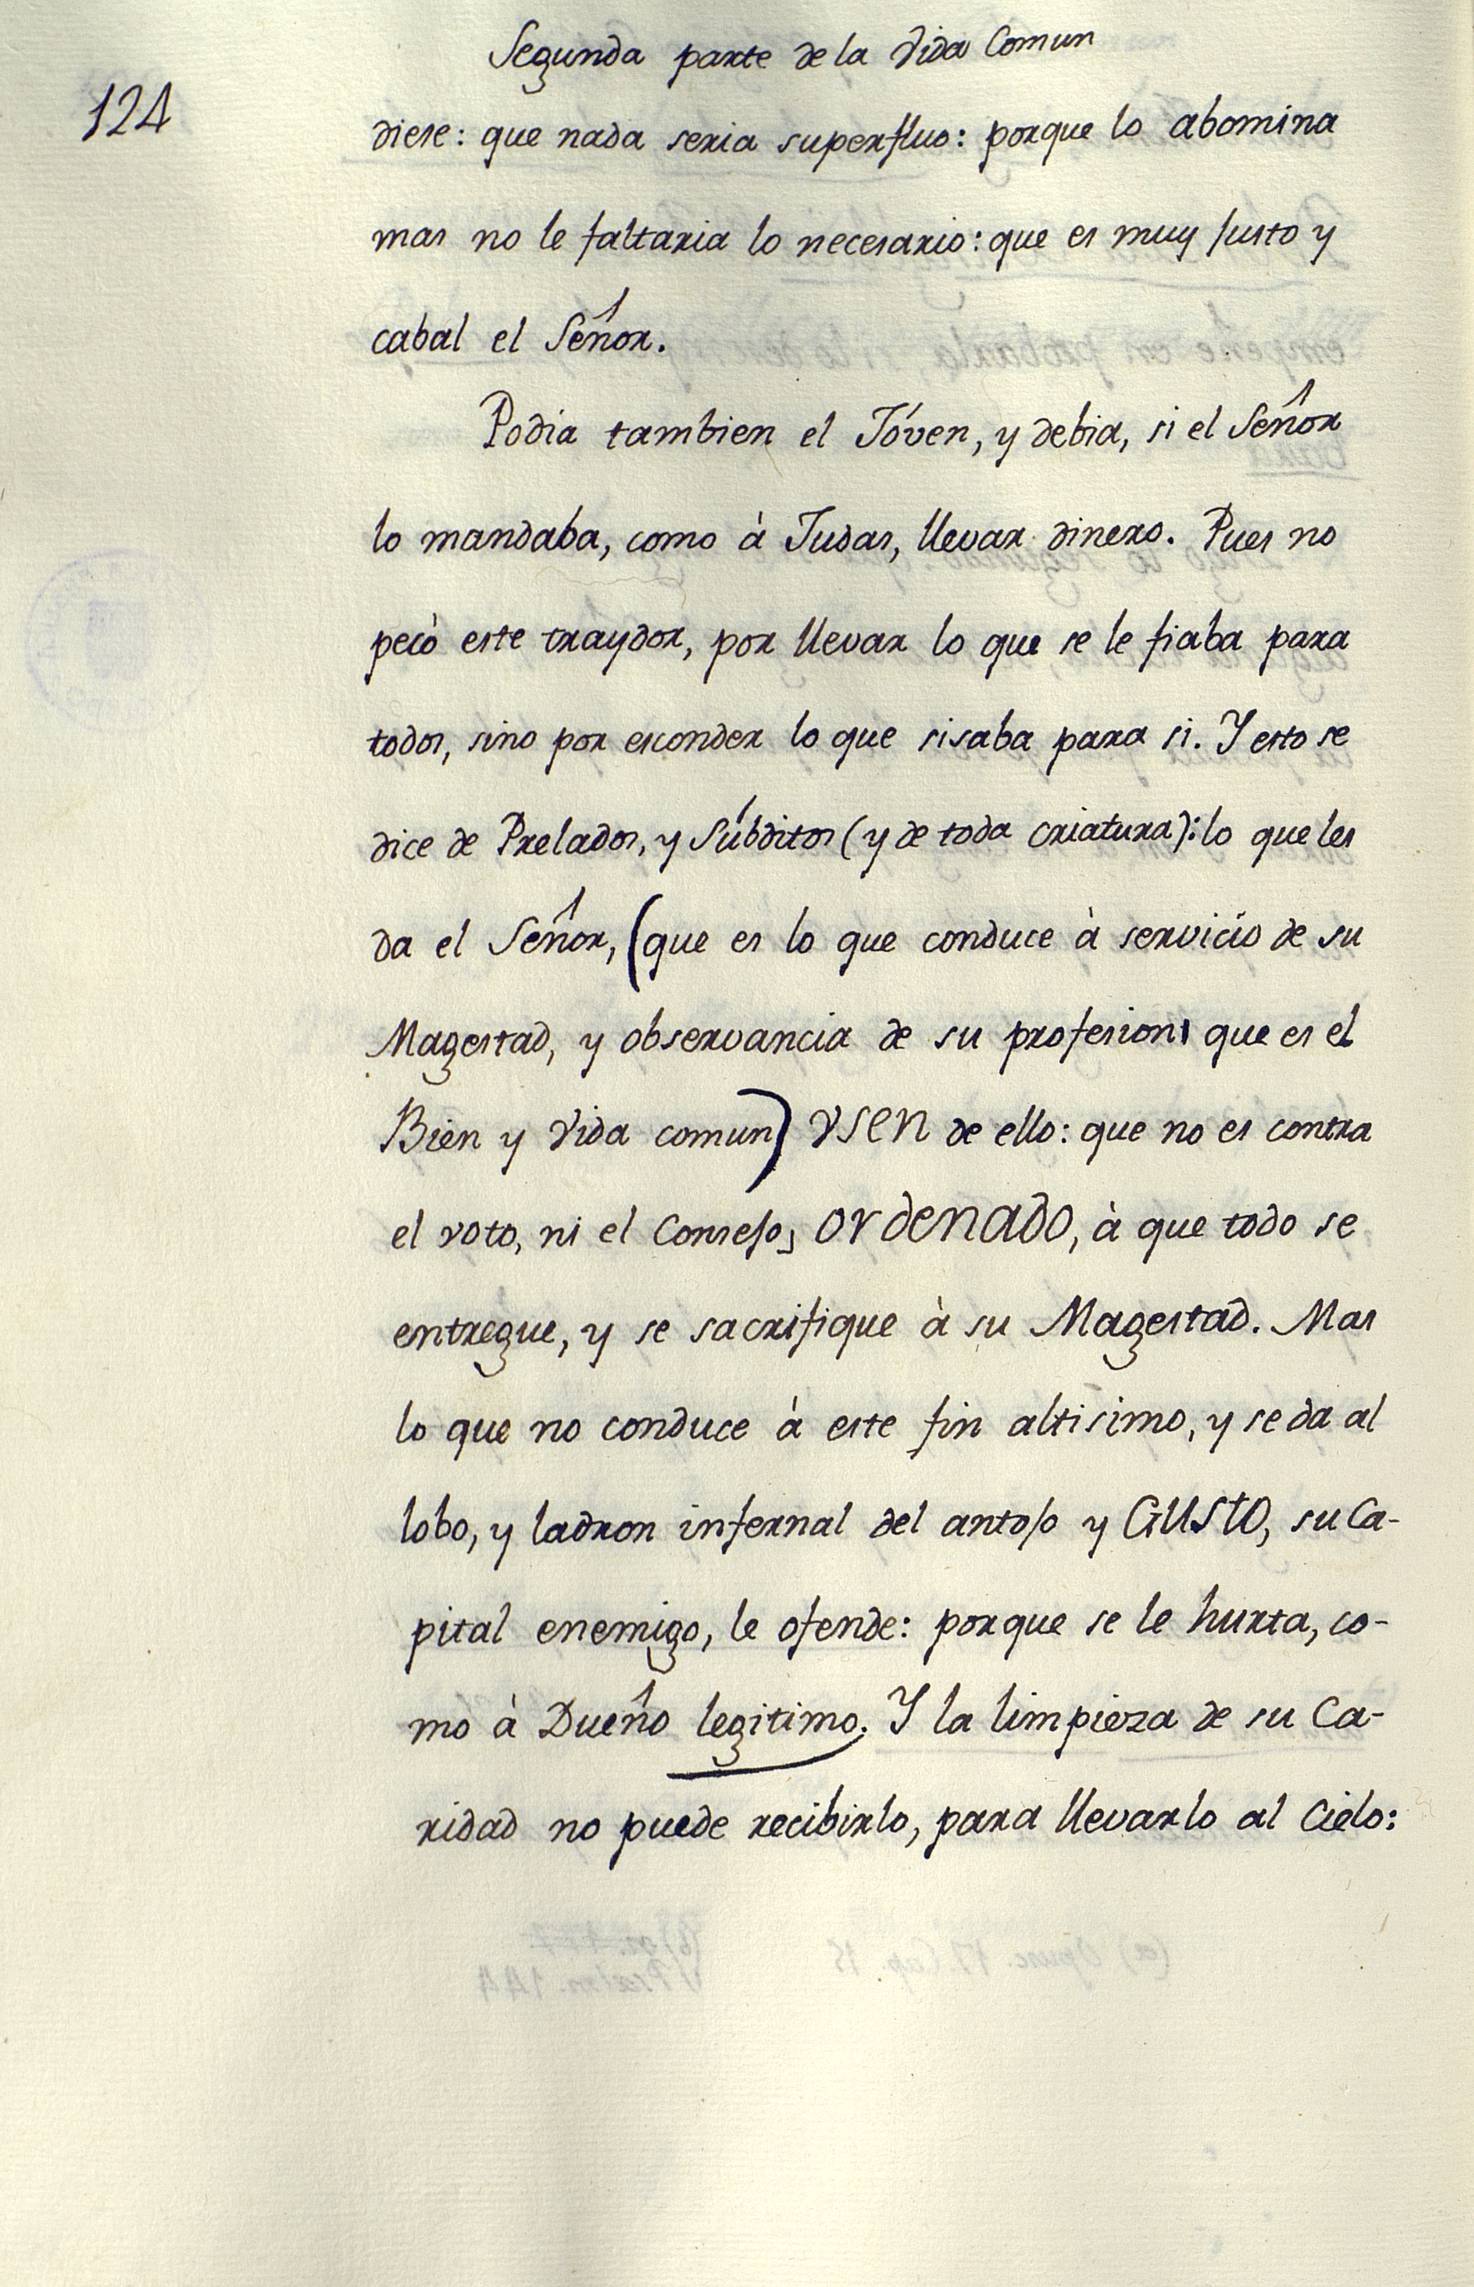 Segunda parte de la Vida Comun
124
diese: que nada seria superfluo: porque lo abomina
mas no le faltaria lo necesario: que es muy justo y
cabal el Señor.
Podia tambien el Jóven, y debia, si el Señor
lo mandaba, como à Judas, llevar dinero. Pues no
pecò este traydor, por llevar lo que se le fiaba para
todos, sino por esconder lo que sisaba para si. Y esto se
dice de Prelados, y Súbditos (y de toda criatura): lo que les
da el Señor, (que es lo que conduce à servicio de su
Magestad, y observancia de su profesion, que es el
Bien y Vida comun) VSEN de ello: que no es contra
el voto, ni el Consejo, ORDENADO, à que todo se
entregue, y se sacrifique à su Magestad. Mas
lo que no conduce à este fin altisimo, y se da al
lobo, y ladron infernal del antojo y GUSTO, su Ca-
pital enemigo, le ofende: porque se le hurta, co-
mo à Dueño legitimo. Y la limpieza de su Ca-
ridad no puede recibirlo, para llevarlo al Cielo: